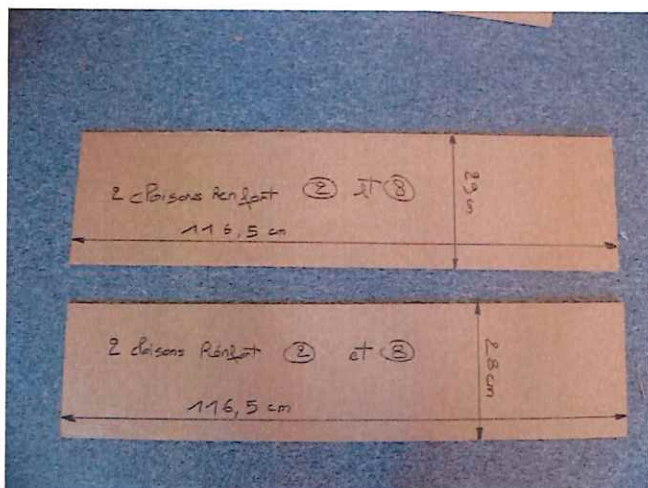 2 cloisons Renfort ② et ⑧
116,5 cm
2 cloisons Rénfort ② et ⑧
28 cm
116,5 cm